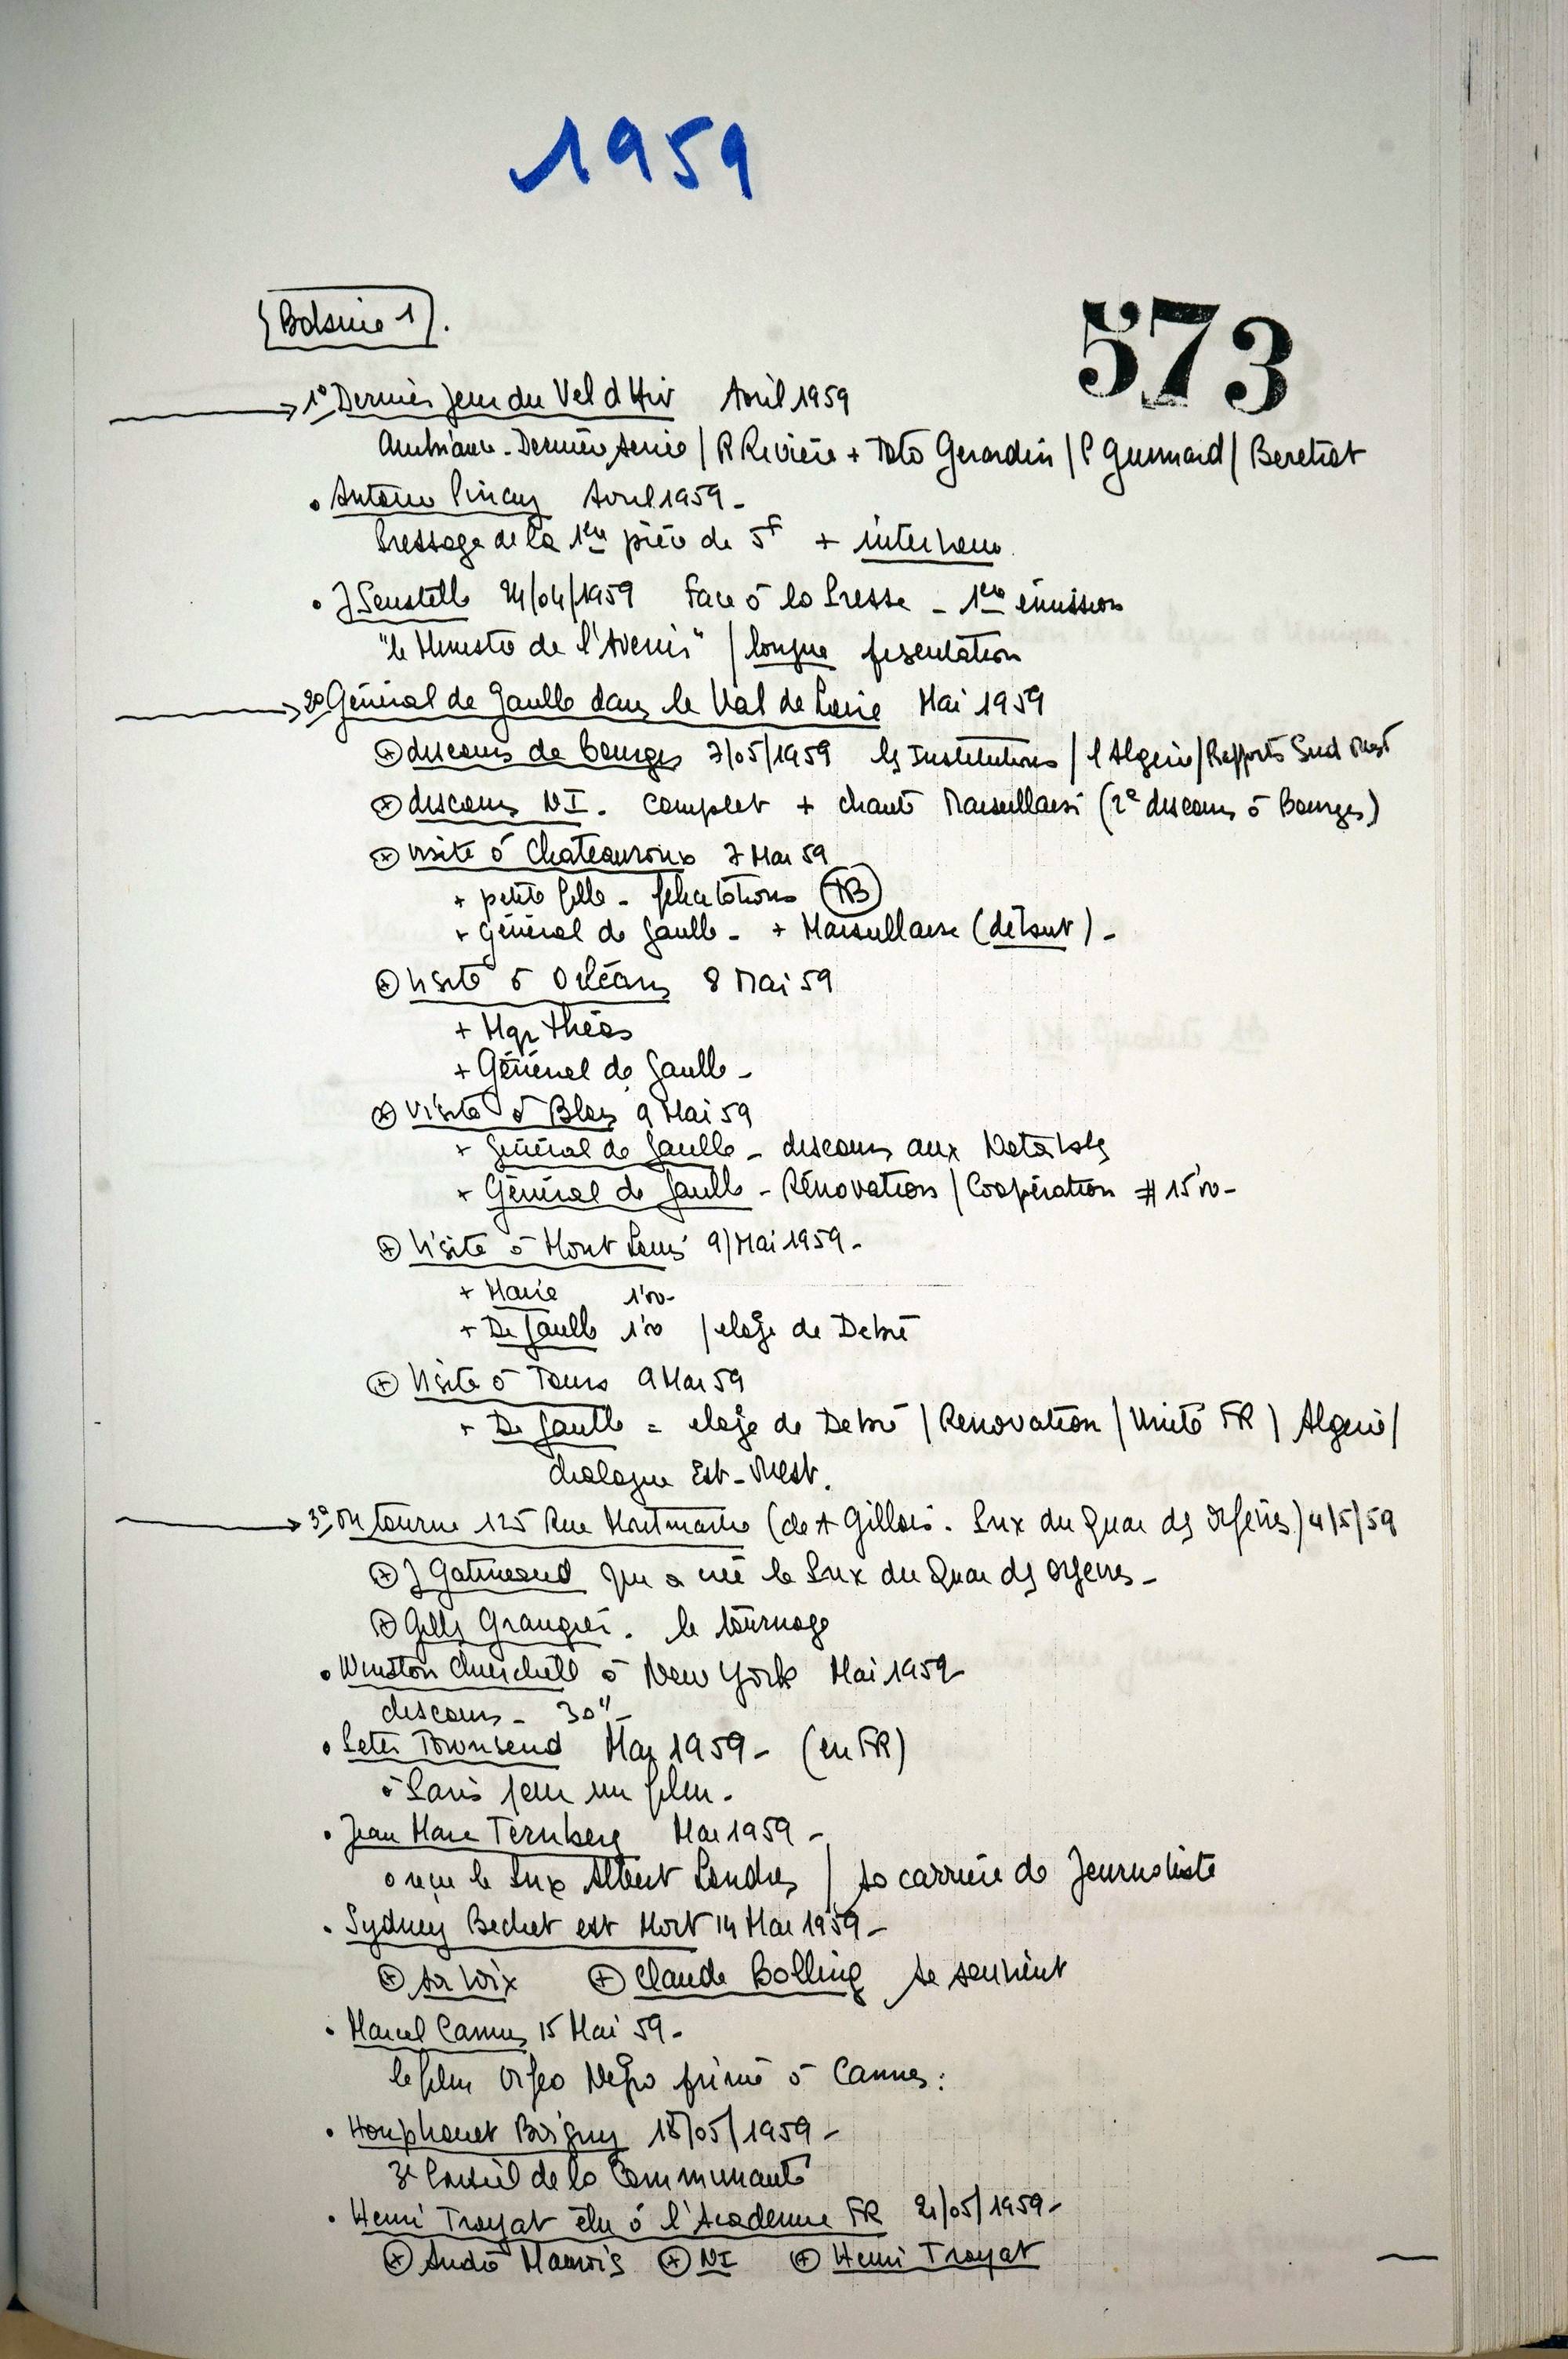 1959
573
Bobine 1.
→ 1° Derniers jours du Vel d'Hiv Avril 1959
Ambiance - Dernière série / R Rivière + Toto Gerardin / P Guimard / Beretrot
• Antoine Pinay Avril 1959 -
Pressage de la 1ère pièce de 5F + interview
• J Soustelle 24/04/1959 Face à la Presse - 1ère émission
"le Ministre de l'Avenir" / longue présentation
→ 2° Général de Gaulle dans le Val de Loire Mai 1959
⊕ discours de Bourges 7/05/1959 les Institutions / l'Algérie / Rapports Sud Ouest
⊕ discours NI. complet + chante Marseillaise (2e discours à Bourges)
⊕ Visite à Chateauroux 7 Mai 59
+ petite fille - félicitations (TB)
+ Général de Gaulle - + Marseillaise (début) -
⊕ Visite à Orléans 8 Mai 59
+ Mgr Théas
+ Général de Gaulle -
⊕ Visite à Blois 9 Mai 59
+ Général de Gaulle - discours aux Notables
+ Général de Gaulle - Rénovation / Coopération # 15'00 -
⊕ Visite à Mont Louis 9/Mai 1959 -
+ Maire 1'00 -
+ De Gaulle 1'00 / éloge de Debré
⊕ Visite à Tours 9 Mai 59
+ De Gaulle = éloge de Debré / Renovation / Unité FR / Algérie /
dialogue Est - Ouest.
→ 3° On tourne 125 Rue Montmartre (de A Gillois - Prix du Quai des Orfèvres) 4/5/59
⊕ J Gatineaud qui a créé le Prix du Quai des Orfèvres -
⊕ Gilles Grangier. le tournage
• Winston Churchill à New York Mai 1959
discours - 30" -
• Peter Townsend Mai 1959 - (en FR)
à Paris pour un film.
• Jean Marc Ternberg Mai 1959 -
a reçu le Prix Albert Londres / sa carrière de Journaliste
• Sydney Bechet est Mort 14 Mai 1959 -
⊕ sa Voix ⊕ Claude Bolling se souvient
• Marcel Camus 15 Mai 59 -
le film Orfeo Negro primé à Cannes :
• Houphouet Boigny 18/05/1959 -
3e Conseil de la Communauté
• Henri Troyat élu à l'Academie FR 21/05/1959 -
⊕ André Maurois ⊕ NI ⊕ Henri Troyat